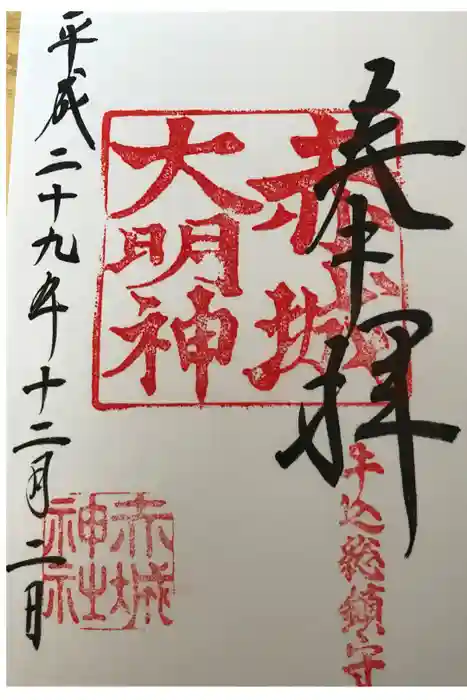 奉拝
赤城
大明神
牛込総鎮守
赤城
神社
平成二十九年十二月二日